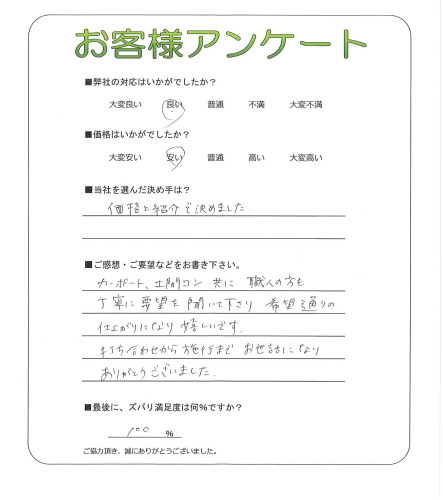 お客様アンケート
■弊社の対応はいかがでしたか？
大変良い 良い 普通 不満 大変不満
■価格はいかがでしたか？
大変安い 安い 普通 高い 大変高い
■当社を選んだ決め手は？
価格と紹介で決めました
■ご感想・ご要望などをお書き下さい。
カーポート、土間コン 共に 職人の方も
丁寧に要望を聞いて下さり 希望通りの
仕上がりになり 嬉しいです。
打ち合わせから施行まで お世話になり
ありがとうございました.
■最後に、ズバリ満足度は何％ですか？
100 ％
ご協力頂き、誠にありがとうございました。